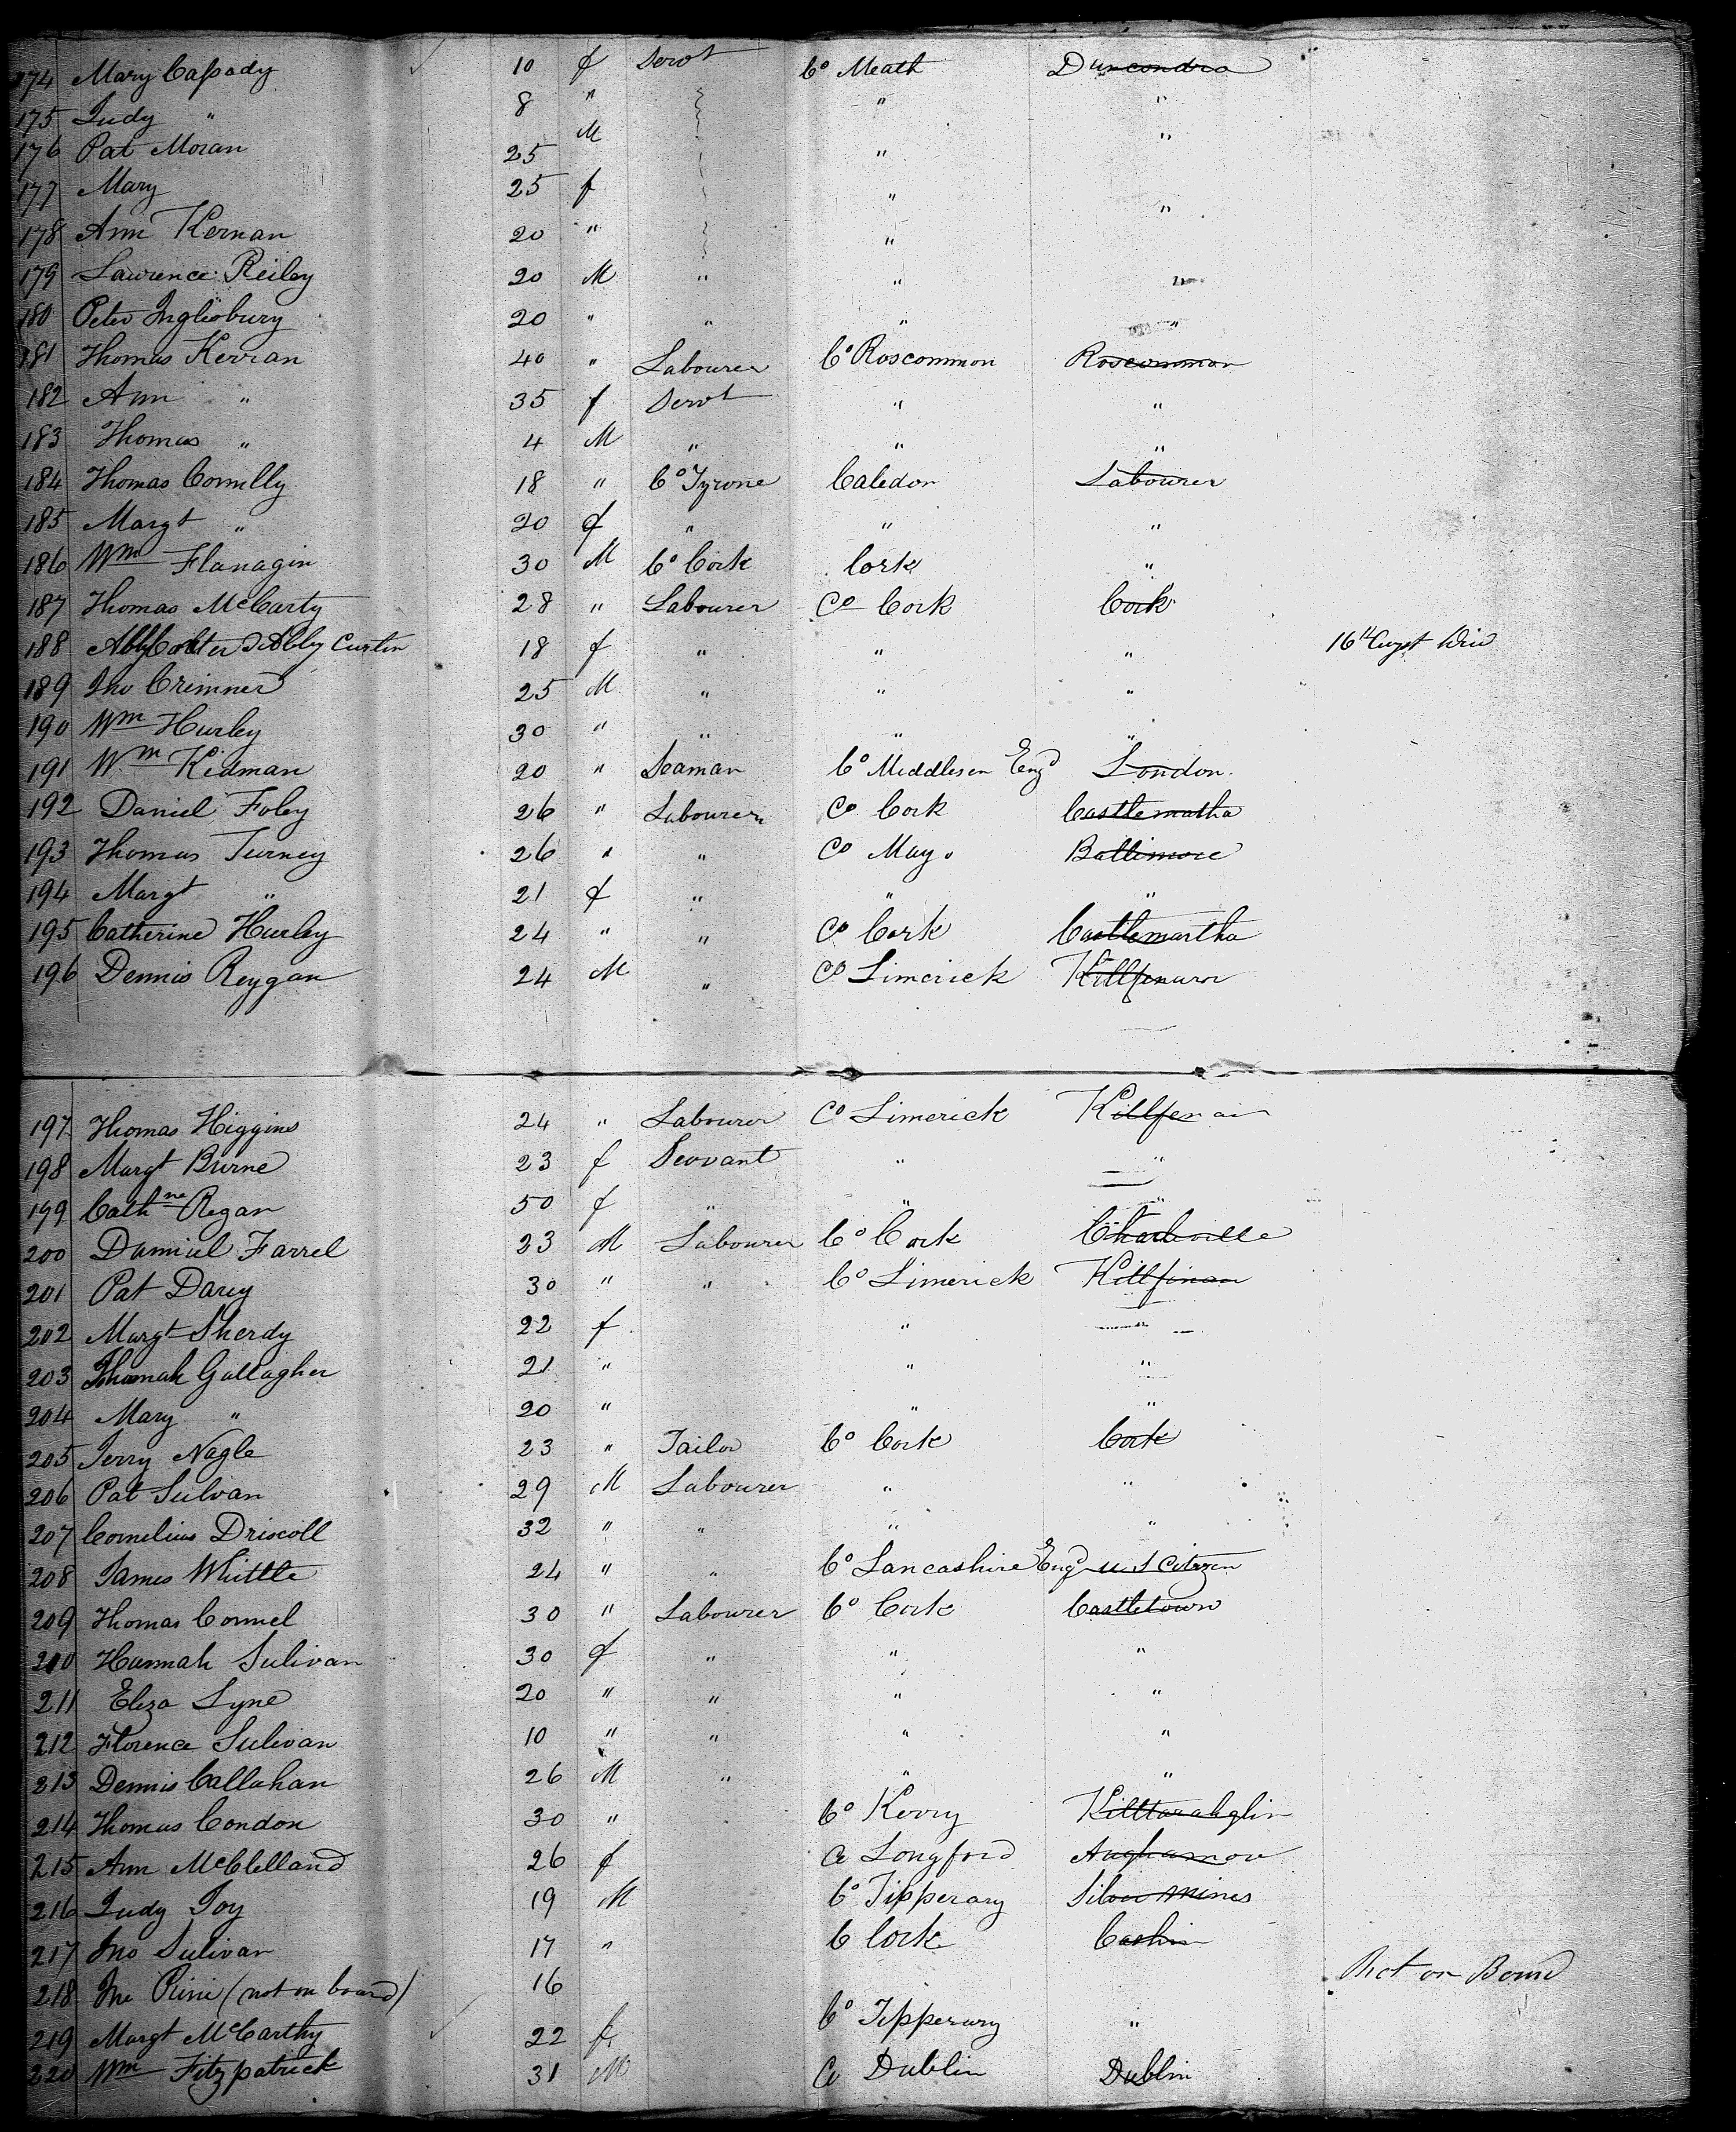 174 Mary Cassady 10 f Servt Co Meath Duncondra
175 Judy " 8 " " "
176 Pat Moran 25 M " "
177 Mary 25 f " "
178 Ann Kernan 20 " "
179 Lawrence Reiley 20 M " " "
180 Peter Inglesbury 20 " " " "
181 Thomas Kerran 40 " Labourer Co Roscommon Roscommon
182 Ann " 35 f Servt " "
183 Thomas " 4 M " " "
184 Thomas Connilly 18 " Co Tyrone Caledon Labourer
185 Margt " 20 f " " "
186 Wm Flanagin 30 M Co Cork Cork "
187 Thomas McCarty 28 " Labourer Co Cork Cork
188 Abby Curtin 18 f " " " 16th
189 Jno Crimner 25 M " " "
190 Wm Hurley 30 " " " "
191 Wm Kidman 20 " Seaman Co Middlesex Engd London.
192 Daniel Foley 26 " Labourer Co Cork Castlematha
193 Thomas Turney 26 " " Co Mayo Baltimore
194 Margt " 21 f " " "
195 Catherine Hurley 24 " " Co Cork Castlemartha
196 Dennis Reygan 24 M " Co Limerick
197 Thomas Higgins 24 " Labourer Co Limerick Killfenain
198 Margt Burne 23 f Servant " "
199 Cathne Regan 50 f " " "
200 Damiel Farrel 23 M Labourer Co Cork Charleville
201 Pat Darcy 30 " " Co Limerick Killfinan
202 Margt Sherdy 22 f "
203 Gallagher 21 " " "
204 Mary " 20 " " "
205 Jerry Nagle 23 " Tailor Co Cork Cork
206 Pat Sulvan 29 M Labourer " "
207 Cornelius Driscoll 32 " " " "
208 James Whittle 24 " " Co Lancashire Engd U S Citizen
209 Thomas Connel 30 " Labourer Co Cork Castletown
210 Hannah Sulivan 30 f " " "
211 Eliza Lyne 20 " " " "
212 Florence Sulivan 10 " " " "
213 Dennis Callahan 26 M " " "
214 Thomas Condon 30 " Co Kerry Killtarahglin
215 Ann McClelland 26 f Co Longford
216 Judy Joy 19 M Co Tipperary Silver Mines
217 Jno Sulivan 17 " C Cork Cashin
218 Jno Rini (not on board) 16 Not on Board
219 Margt McCarthy 22 f. Co Tipperary "
220 Wm Fitzpatrick 31 M Co Dublin Dublin